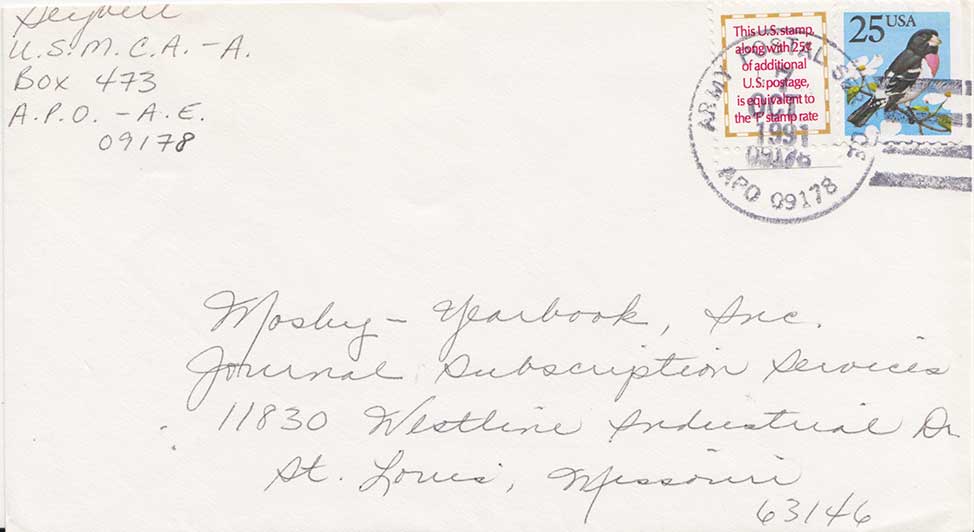 U.S.M.C.A. - A.
Box 473
A.P.O. - A.E.
09178
This U.S. stamp,
along with 25¢
of additional
U.S. postage,
is equivalent to
the 'F' stamp rate
25 USA
ARMY POSTAL SERVICE
7
OCT
1991
09178
APO 09178
Mosby - Yearbook, Inc.
Journal Subscription Services
11830 Westline Industrial Dr
St. Louis, Missouri
63146